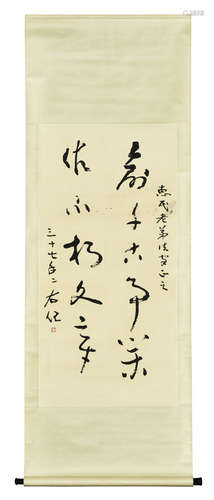 惠民老弟法家正之
創千古事業
作不朽文章
三十七年二 右任